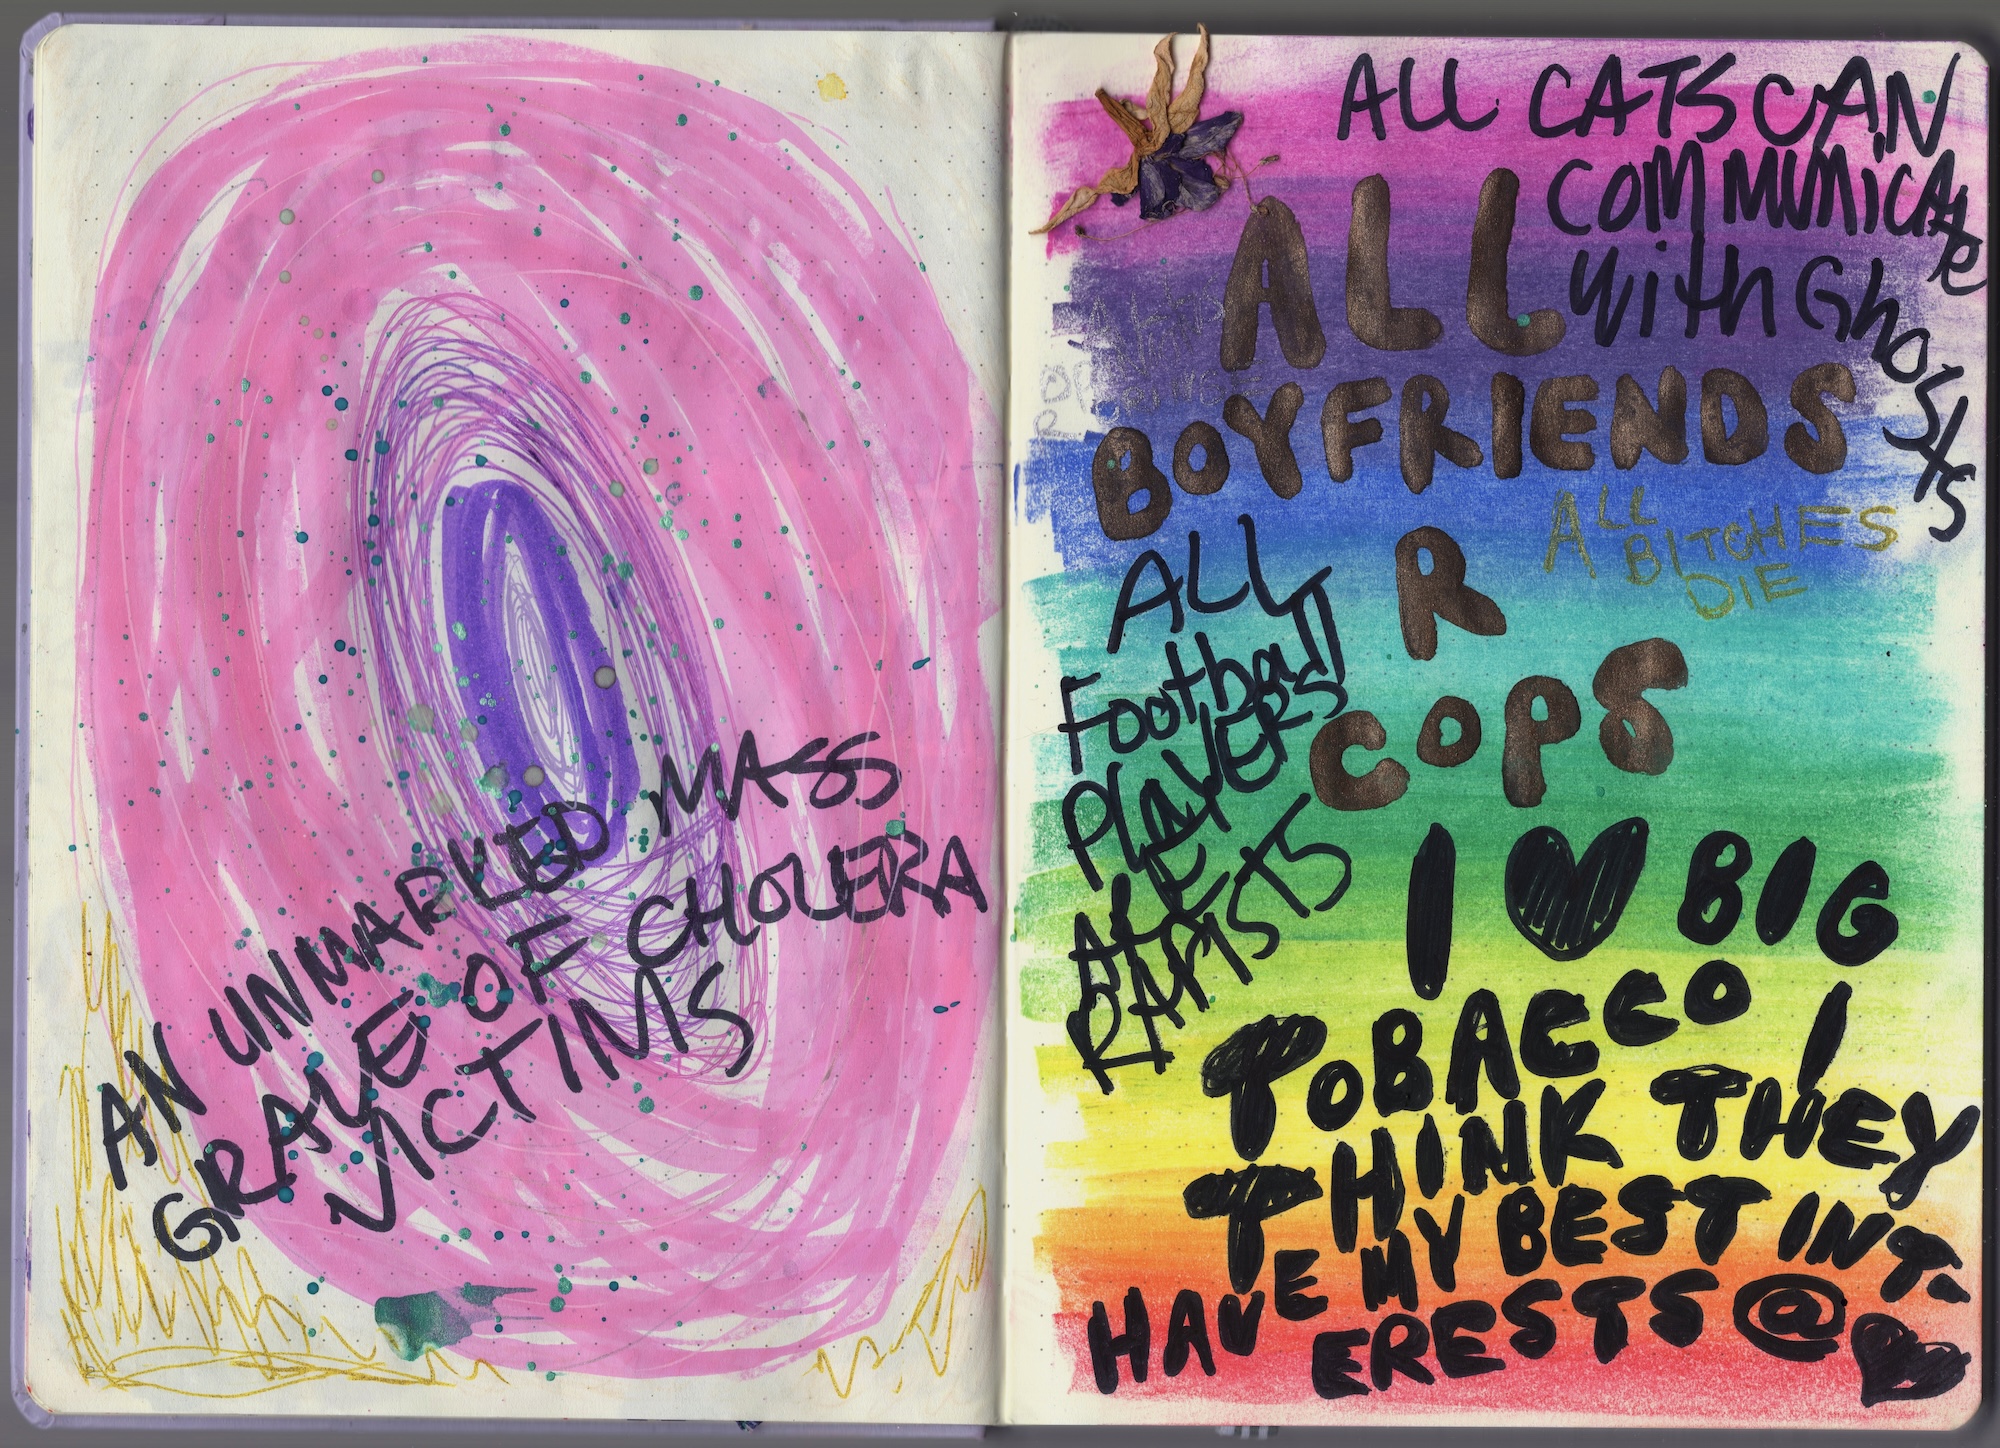 AN UNMARKED MASS
GRAVE OF CHOLERA
VICTIMS
ALL CATS CAN
COMMUNICATE
WITH GhOSTS
ALL
BOYFRIENDS
R
COPS
ALL
BITCHES
DIE
ALL
Football
PlAyERS
ARE
RAPISTS
I ♥ BIG
TOBACCO I
THINK THEY
HAVE MY BEST INT-
ERESTS @ ♥